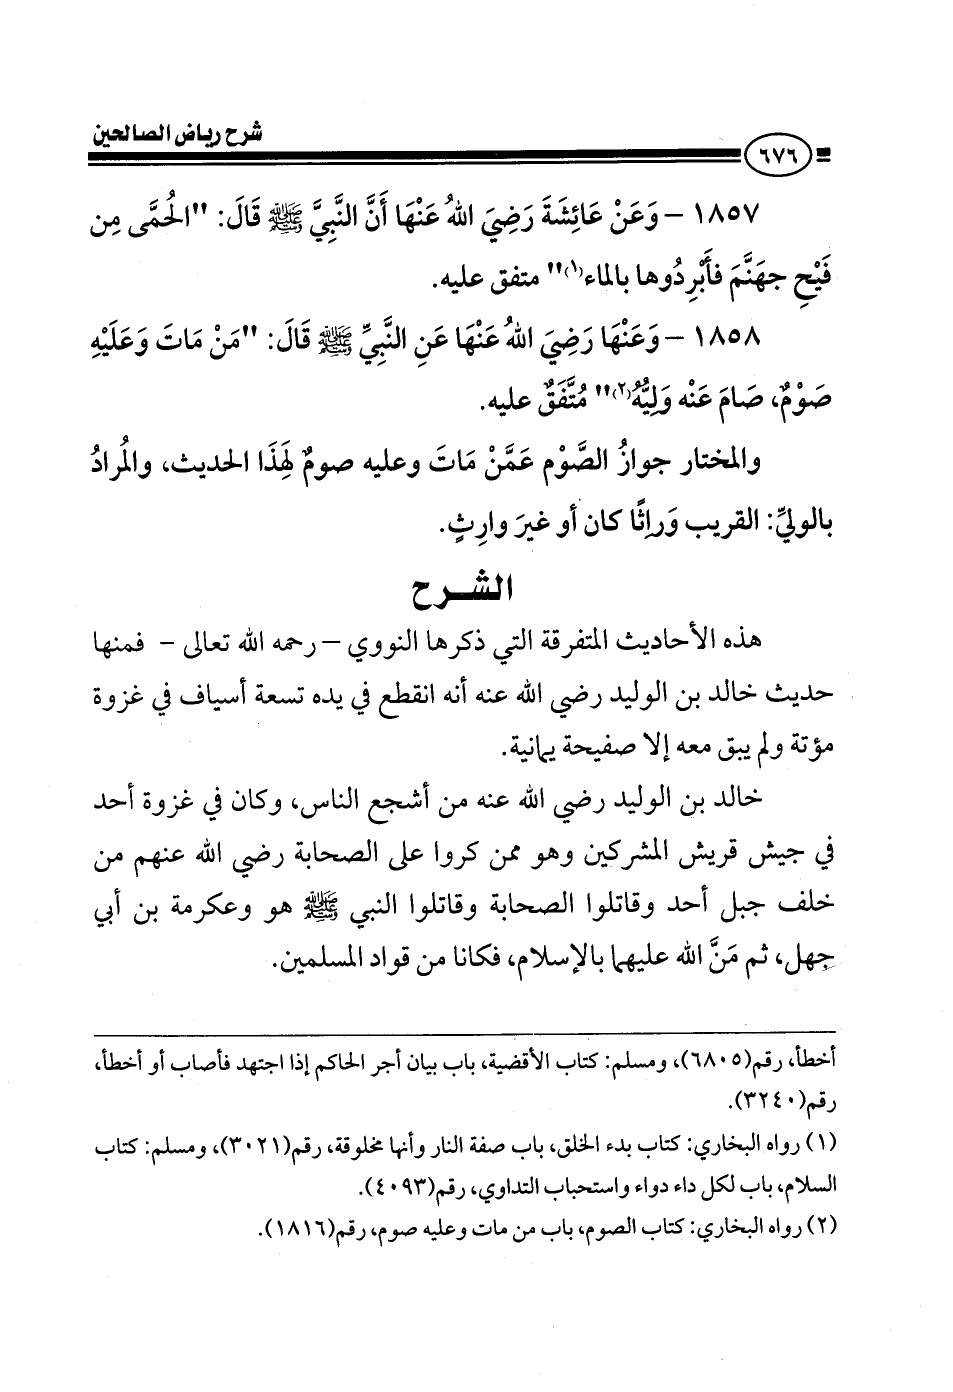 شرح رياض الصالحين
٦٧٦
١٨٥٧ – وَعَنْ عَائِشَةَ رَضِيَ اللهُ عَنْهَا أَنَّ النَّبِيَّ ﷺ قَالَ: "الْحُمَّى مِن
فَيْحِ جهَنَّمَ فأَبْرِدُوها بالماء(١)" متفق عليه.
١٨٥٨ – وَعَنْهَا رَضِيَ اللهُ عَنْهَا عَنِ النَّبِيِّ ﷺ قَالَ: "مَنْ مَاتَ وَعَلَيْهِ
صَوْمٌ، صَامَ عَنْه وَلِيُّهُ(٢)" مُتَّفَقٌ عليه.
والمختار جوازُ الصَّوْم عَمَّنْ مَاتَ وعليه صومٌ لهَذَا الحديث، والمُرادُ
بالوليِّ: القريب وَرِاثًا كان أو غيرَ وارِثٍ.
الشـرح
هذه الأحاديث المتفرقة التي ذكرها النووي – رحمه الله تعالى – فمنها
حديث خالد بن الوليد رضي الله عنه أنه انقطع في يده تسعة أسياف في غزوة
مؤتة ولم يبق معه إلا صفيحة يمانية.
خالد بن الوليد رضي الله عنه من أشجع الناس، وكان في غزوة أحد
في جيش قريش المشركين وهو ممن كروا على الصحابة رضي الله عنهم من
خلف جبل أحد وقاتلوا الصحابة وقاتلوا النبي ﷺ هو وعكرمة بن أبي
جهل، ثم مَنَّ الله عليهما بالإسلام، فكانا من قواد المسلمين.
أخطأ، رقم(٦٨٠٥)، ومسلم: كتاب الأقضية، باب بيان أجر الحاكم إذا اجتهد فأصاب أو أخطأ،
رقم(٣٢٤٠).
(١) رواه البخاري: كتاب بدء الخلق، باب صفة النار وأنها مخلوقة، رقم(٣٠٢١)، ومسلم: كتاب
السلام، باب لكل داء دواء واستحباب التداوي، رقم(٤٠٩٣).
(٢) رواه البخاري: كتاب الصوم، باب من مات وعليه صوم، رقم(١٨١٦).